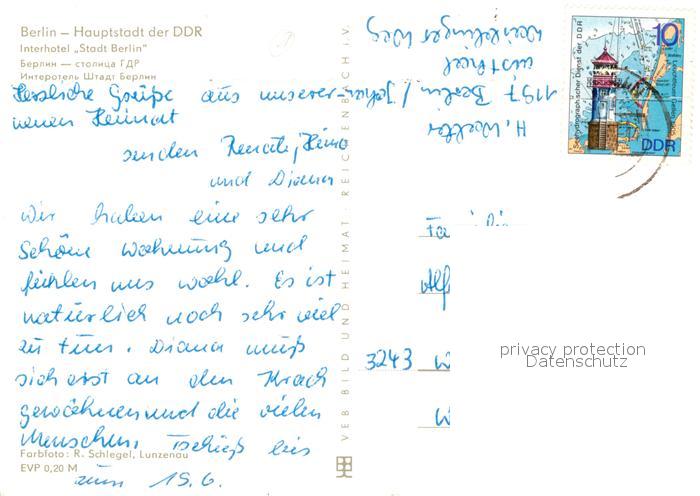 Berlin – Hauptstadt der DDR
Interhotel „Stadt Berlin“
Берлин — столица ГДР
Интеротель Штадт Берлин
Herzliche Grüße aus unserer
neuen Heimat
senden Renate, Heino
und Diana
Wir haben eine sehr
schöne Wohnung und
fühlen uns wohl. Es ist
natürlich noch sehr viel
zu tun. Diana muß
sich erst an den Krach
gewöhnen und die vielen
Menschen. Tschüß bis
zum 15.6.
Farbfoto: R. Schlegel, Lunzenau
EVP 0,20 M
VEB BILD UND HEIMAT REICHENBACH i. V.
H. Walter
1197 Berlin / Johan
Weg
Seehydrographischer Dienst der DDR
10
DDR
Alf
3243 W
W
privacy protection
Datenschutz